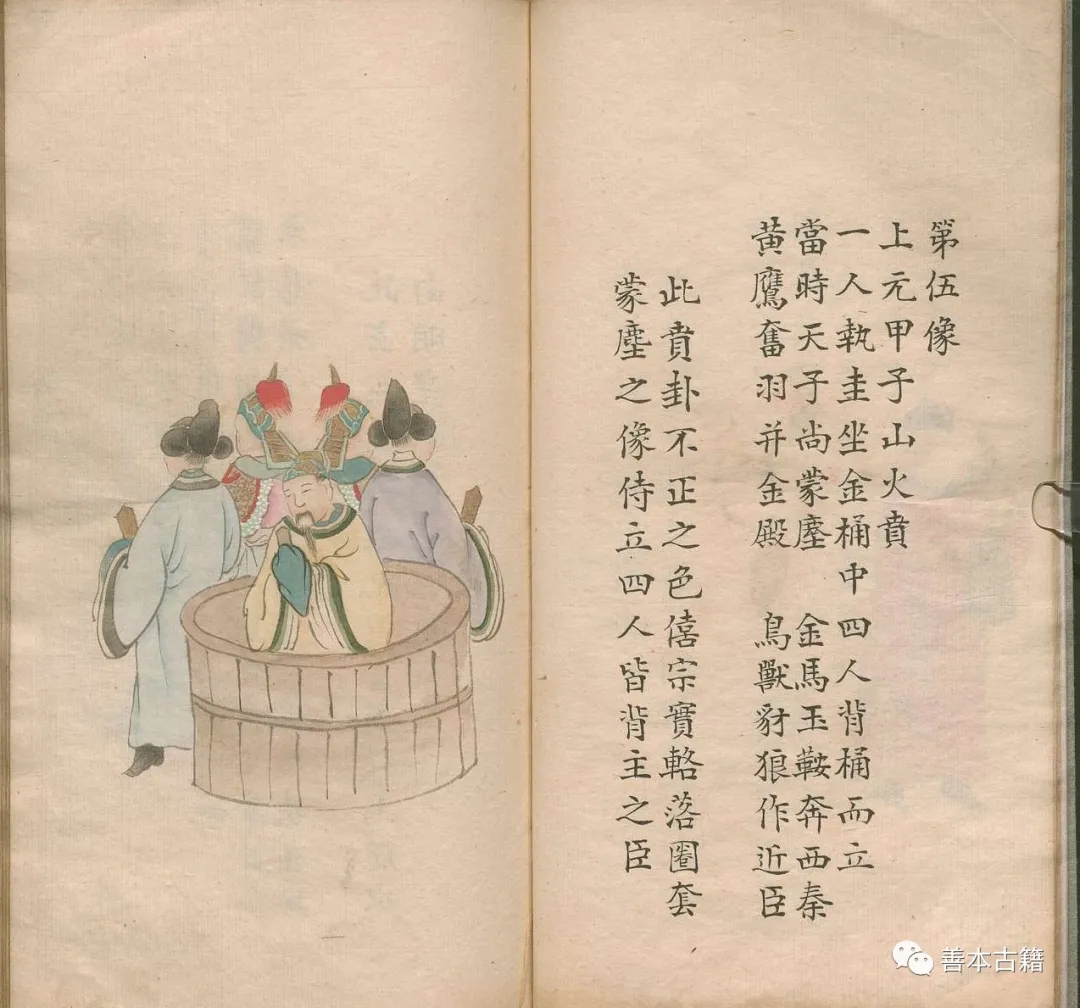 第伍像
上元甲子山火賁
一人執圭坐金桶中四人背桶而立
當時天子尚蒙塵　金馬玉鞍奔西秦
黃鷹奮羽并金殿　鳥獸豺狼作近臣
此賁卦不正之色僖宗實輅落圈套
蒙塵之像侍立四人皆背主之臣
善本古籍